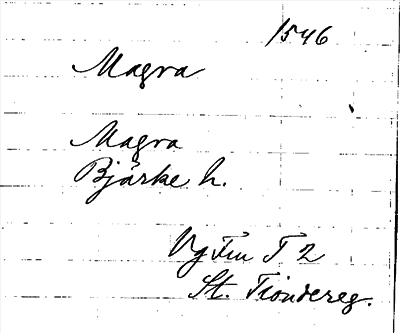 1546
Magra
Magra
Bjärke h.
Vg Fru T 2
St. Tiondereg.